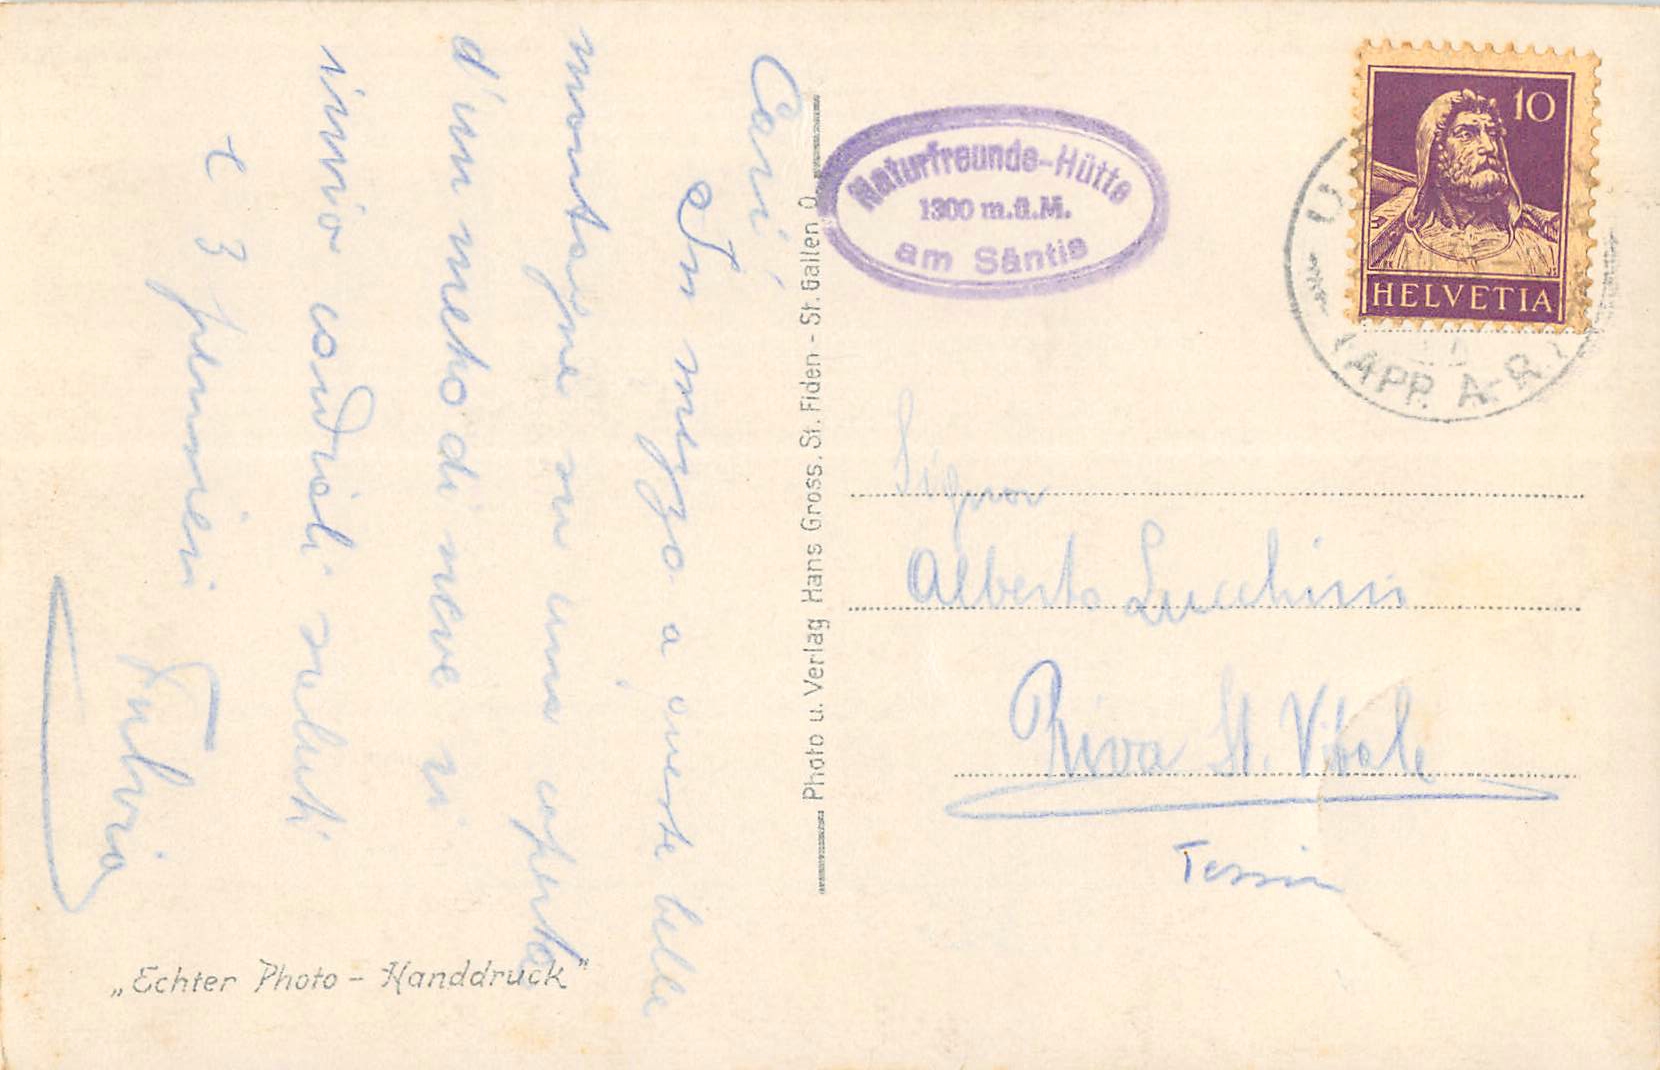 Cari
In mezzo a queste belle
montagne su una coperta
d'un metro di neve vi
invio cordiali saluti
e 3 pensieri
Fulvio
„Echter Photo - Handdruck"
Photo u. Verlag Hans Gross, St. Fiden - St. Gallen O.
Naturfreunde-Hütte
1300 m.ü.M.
am Säntis
10
HELVETIA
(APP. A-R.)
Signor
Alberto Lucchini
Riva St. Vitale
Tessin